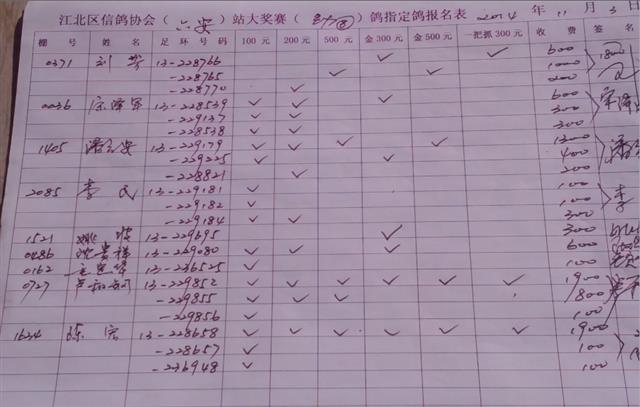 江北区信鸽协会（六安）站大奖赛（ ）鸽指定鸽报名表 2014年11月3
棚号 姓名 足环号码 100元 200元 500元 金300元 金500元 一把抓300元 收费 签名
0371 刘 13-228766 ✓ ✓ 600
-228765 ✓ ✓ 1000 1800
-228770 ✓ 200
0036 13-228539 ✓ ✓ ✓ 600
-229137 ✓ ✓ 300
-228538 ✓ ✓ 300
1405 13-229179 ✓ ✓ ✓ ✓ 1300
-229225 ✓ ✓ 400
-228821 ✓ 200
2085 李民 13-229181 ✓ 100 李
-229182 ✓ 100
-229184 ✓ ✓ 300
1521 姚 13-229695 ✓ 300
0486 13-229080 ✓ ✓ ✓ 600
0162 13-236525 ✓ 100
0727 13-229852 ✓ ✓ ✓ ✓ ✓ ✓ 1900
-229855 ✓ ✓ ✓ 800
-229856 ✓ 100
1634 陈宏 13-228658 ✓ ✓ ✓ ✓ ✓ ✓ 1900
-228657 ✓ 100
-236948 ✓ 100